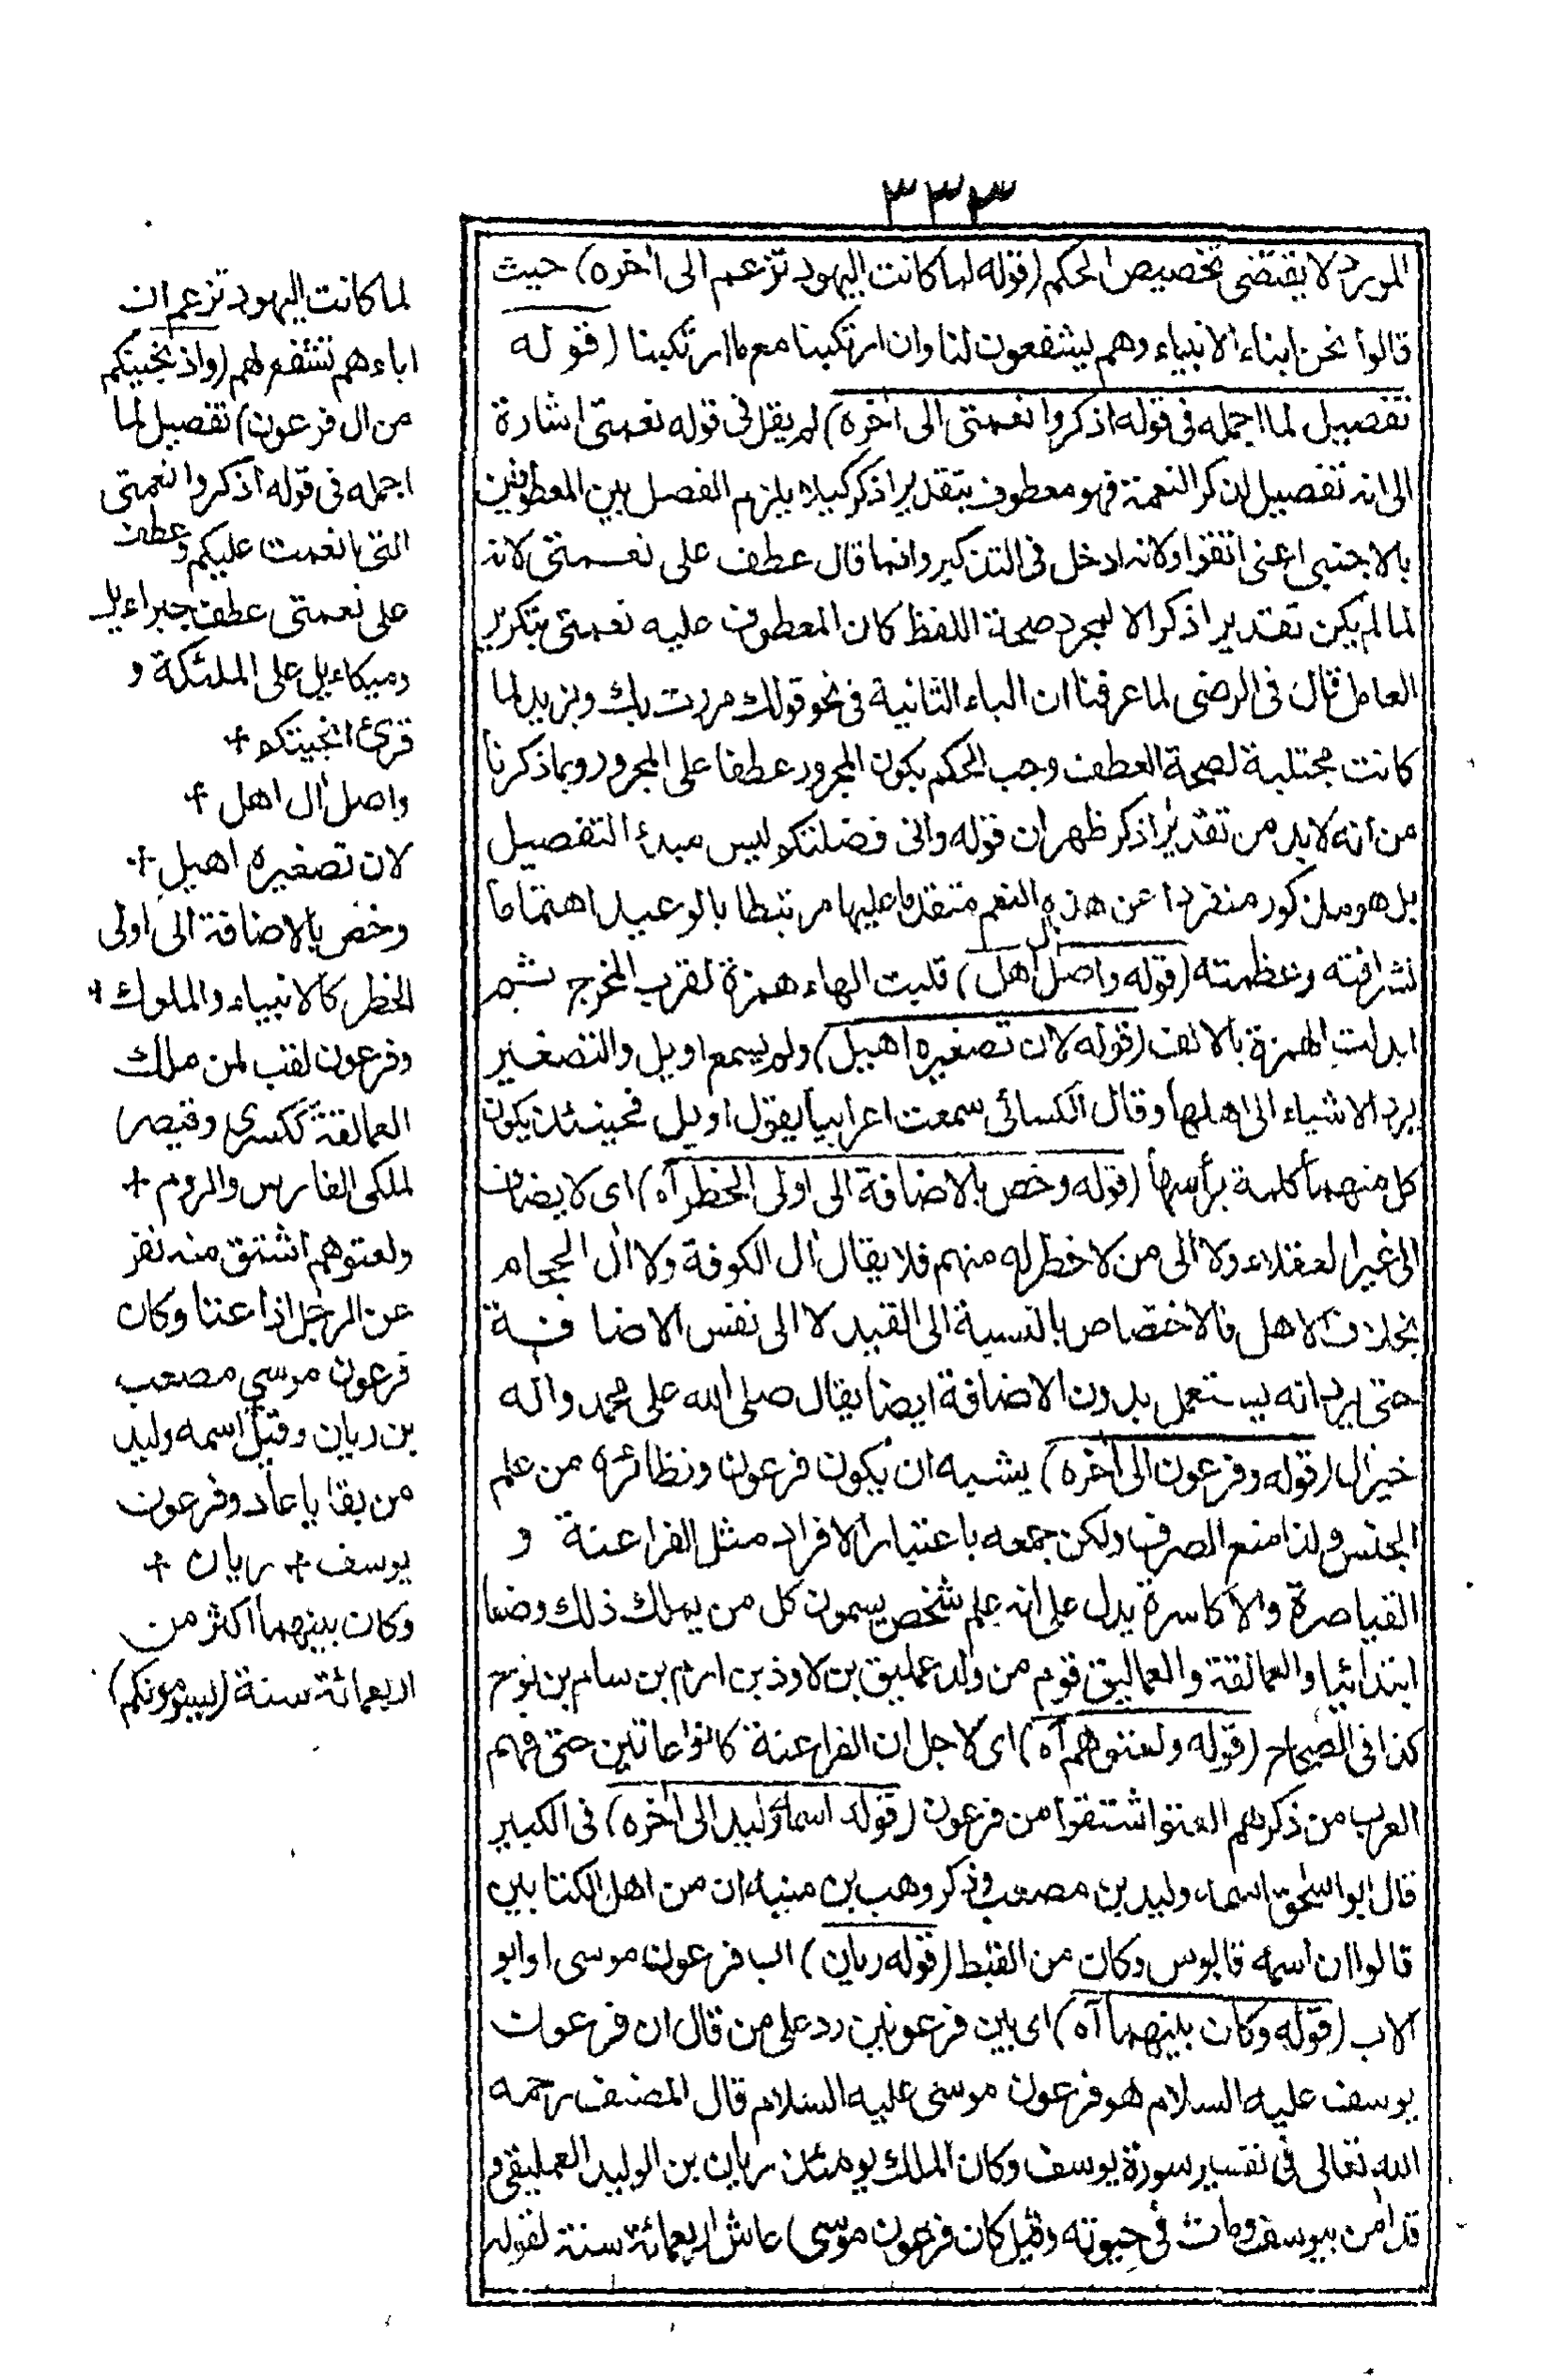 ٣٣٣
المورد لا يقتضى تخصيص الحكم (قوله لما كانت اليهود تزعم الى اخره) حيث
قالوا نحن ابناء الانبياء وهم يشفعون لنا وان ارتكبنا مع ما ارتكبنا (قوله
تفصيل لما اجمله فى قوله اذكروا نعمتى الى اخره) لم يقل فى قوله نعمتى اشارة
الى انه تفصيل لذكر النعمة فهو معطوف بتقدير اذكر كيلا يلزم الفصل بين المعطوفين
بالاجنبى اعنى اتقوا ولانه ادخل فى التذكير وانما قال عطف على نعمتى لانه
لما لم يكن تقدير اذكر الا لمجرد صحة اللفظ كان المعطوف عليه نعمتى بتكرير
العامل قال فى الرضى لما عرفنا ان الباء الثانية فى نحو قولك مررت بك وبزيد لما
كانت مجتلبة لصحة العطف وجب الحكم بكون المجرور عطفا على المجرور وبما ذكرنا
من انه لابد من تقدير اذكر ظهر ان قوله وانى فضلتكم ليس مبدأ التفصيل
بل هو مذكور منفردا عن هذه النعم متقدما عليها مرتبطا بالوعيد اهتماما
لشرافته وعظمته (قوله واصل ال اهل) قلبت الهاء همزة لقرب المخرج ثم
ابدلت الهمزة بالالف (قوله لان تصغيره اهيل) ولم يسمع اويل والتصغير
يرد الاشياء الى اهلها وقال الكسائى سمعت اعرابيا يقول اويل فحينئذ يكون
كل منهما كلمة برأسها (قوله وخص بالاضافة الى اولى الخطر آه) اى لا يضاف
الى غير العقلاء ولا الى من لا خطر له منهم فلا يقال ال الكوفة ولا ال الحجام
بخلاف الاهل فالاختصاص بالنسبة الى القيد لا الى نفس الاضافة
حتى يرد انه يستعمل بدون الاضافة ايضا يقال صلى الله على محمد واله
خير ال (قوله وفرعون الى اخره) يشبه ان يكون فرعون ونظائره من علم
الجنس ولذا منع الصرف ولكن جمعه باعتبار الافراد مثل الفراعنة و
القياصرة والاكاسرة يدل على انه علم شخص يسمون كل من يملك ذلك وضعا
ابتدائيا والعمالقة والعماليق قوم من ولد عمليق بن لاوذ بن ارم بن سام بن نوح
كذا فى الصحاح (قوله ولعتوهم آه) اى لاجل ان الفراعنة كانوا عاتين حتى فهم
العرب من ذكرهم العتو اشتقوا من فرعون (قوله اسمه وليد الى اخره) فى الكبير
قال ابو اسحق اسمه وليد بن مصعب وذكر وهب بن منبه ان من اهل الكتابين
قالوا ان اسمه قابوس وكان من القبط (قوله ريان) اب فرعون موسى او ابو
الاب (قوله وكان بينهما آه) اى بين فرعونين رد على من قال ان فرعون
يوسف عليه السلام هو فرعون موسى عليه السلام قال المصنف رحمه
الله تعالى فى تفسير سورة يوسف وكان الملك يومئذ ريان بن الوليد العمليقى و
قد امن بيوسف ومات فى حيوته وقيل كان فرعون موسى عاش اربعمائة سنة لقوله
لما كانت اليهود تزعم ان
اباءهم تشفع لهم (واذ نجينكم
من ال فرعون) تفصيل لما
اجمله فى قوله اذكروا نعمتى
التى انعمت عليكم وعطف
على نعمتى عطف جبراءيل
وميكاءيل على الملئكة و
قرئ انجيتكم +
واصل ال اهل +
لان تصغيره اهيل +
وخص بالاضافة الى اولى
الخطر كالانبياء والملوك +
وفرعون لقب لمن ملك
العمالقة ككسرى وقيصر
لملكى الفارس والروم +
ولعتوهم اشتق منه تفر
عن الرجل اذا عتا وكان
فرعون موسى مصعب
بن ريان وقيل اسمه وليد
من بقايا عاد وفرعون
يوسف + ريان +
وكان بينهما اكثر من
اربعمائة سنة (يسومونكم)